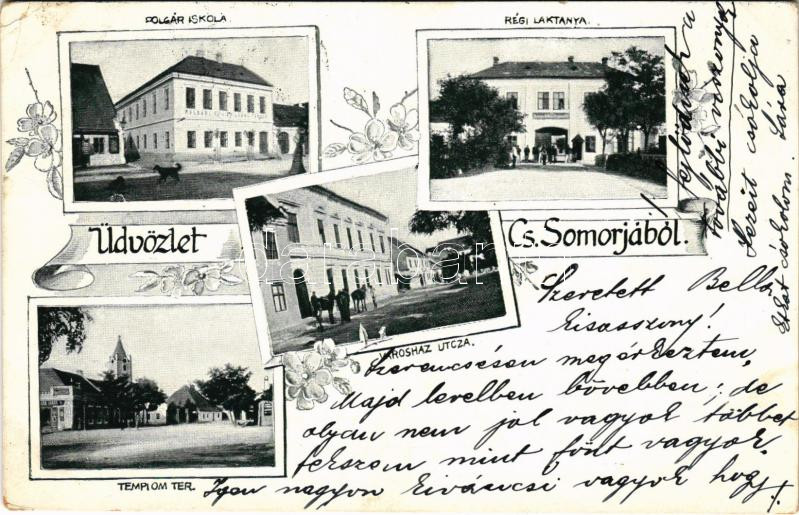 POLGÁR ISKOLA
RÉGI LAKTANYA.
Üdvözlet Cs. Somorjából.
VÁROSHÁZ UTCZA.
TEMPLOM TÉR.
Szeretett Bella
kisasszony!
Szerencsésen megérkeztem,
Majd levelben bővebben; de
olyan nem jól vagyok többet
fekszem mint fönt vagyok.
Igen nagyon kiváncsi vagyok hogy
a
további
Kezeit csókolja
Sára
csókolom.